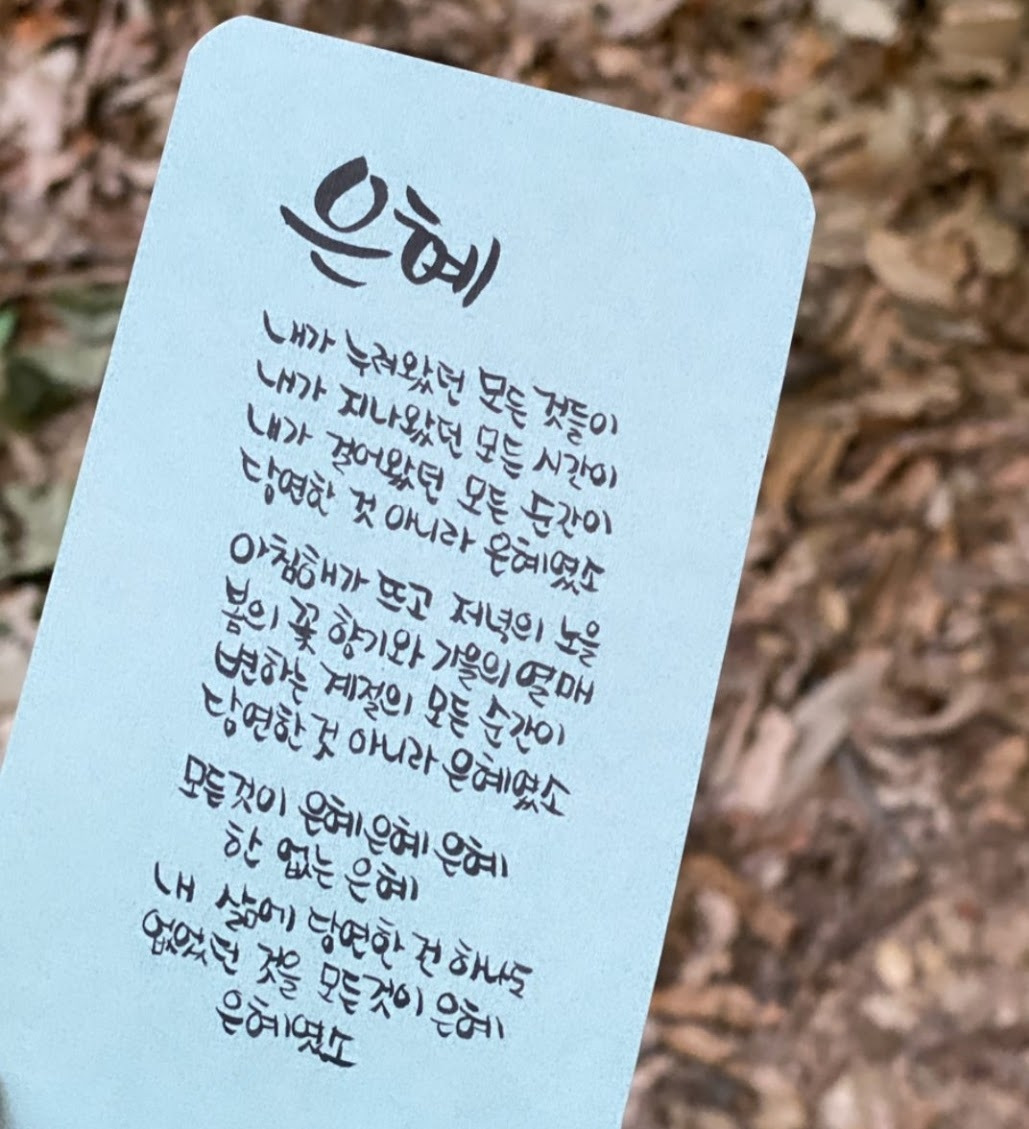 은혜
내가 누려왔던 모든 것들이
내가 지나왔던 모든 시간이
내가 걸어왔던 모든 순간이
당연한 것 아니라 은혜였소
아침해가 뜨고 저녁의 노을
봄의 꽃 향기와 가을의 열매
변하는 계절의 모든 순간이
당연한것 아니라 은혜였소
모든것이 은혜은혜 은혜
한 없는 은혜
내 삶에 당연한 건 하나도
없었던 것을 모든것이 은혜
은혜였소